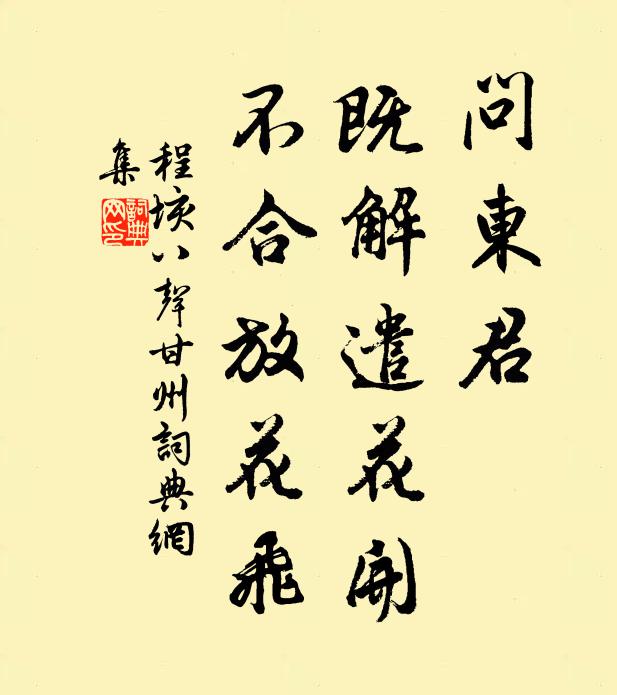 問東君
既解遣花開
不合放花飛
程垓八聲甘州詞典網
集
詞典
网印